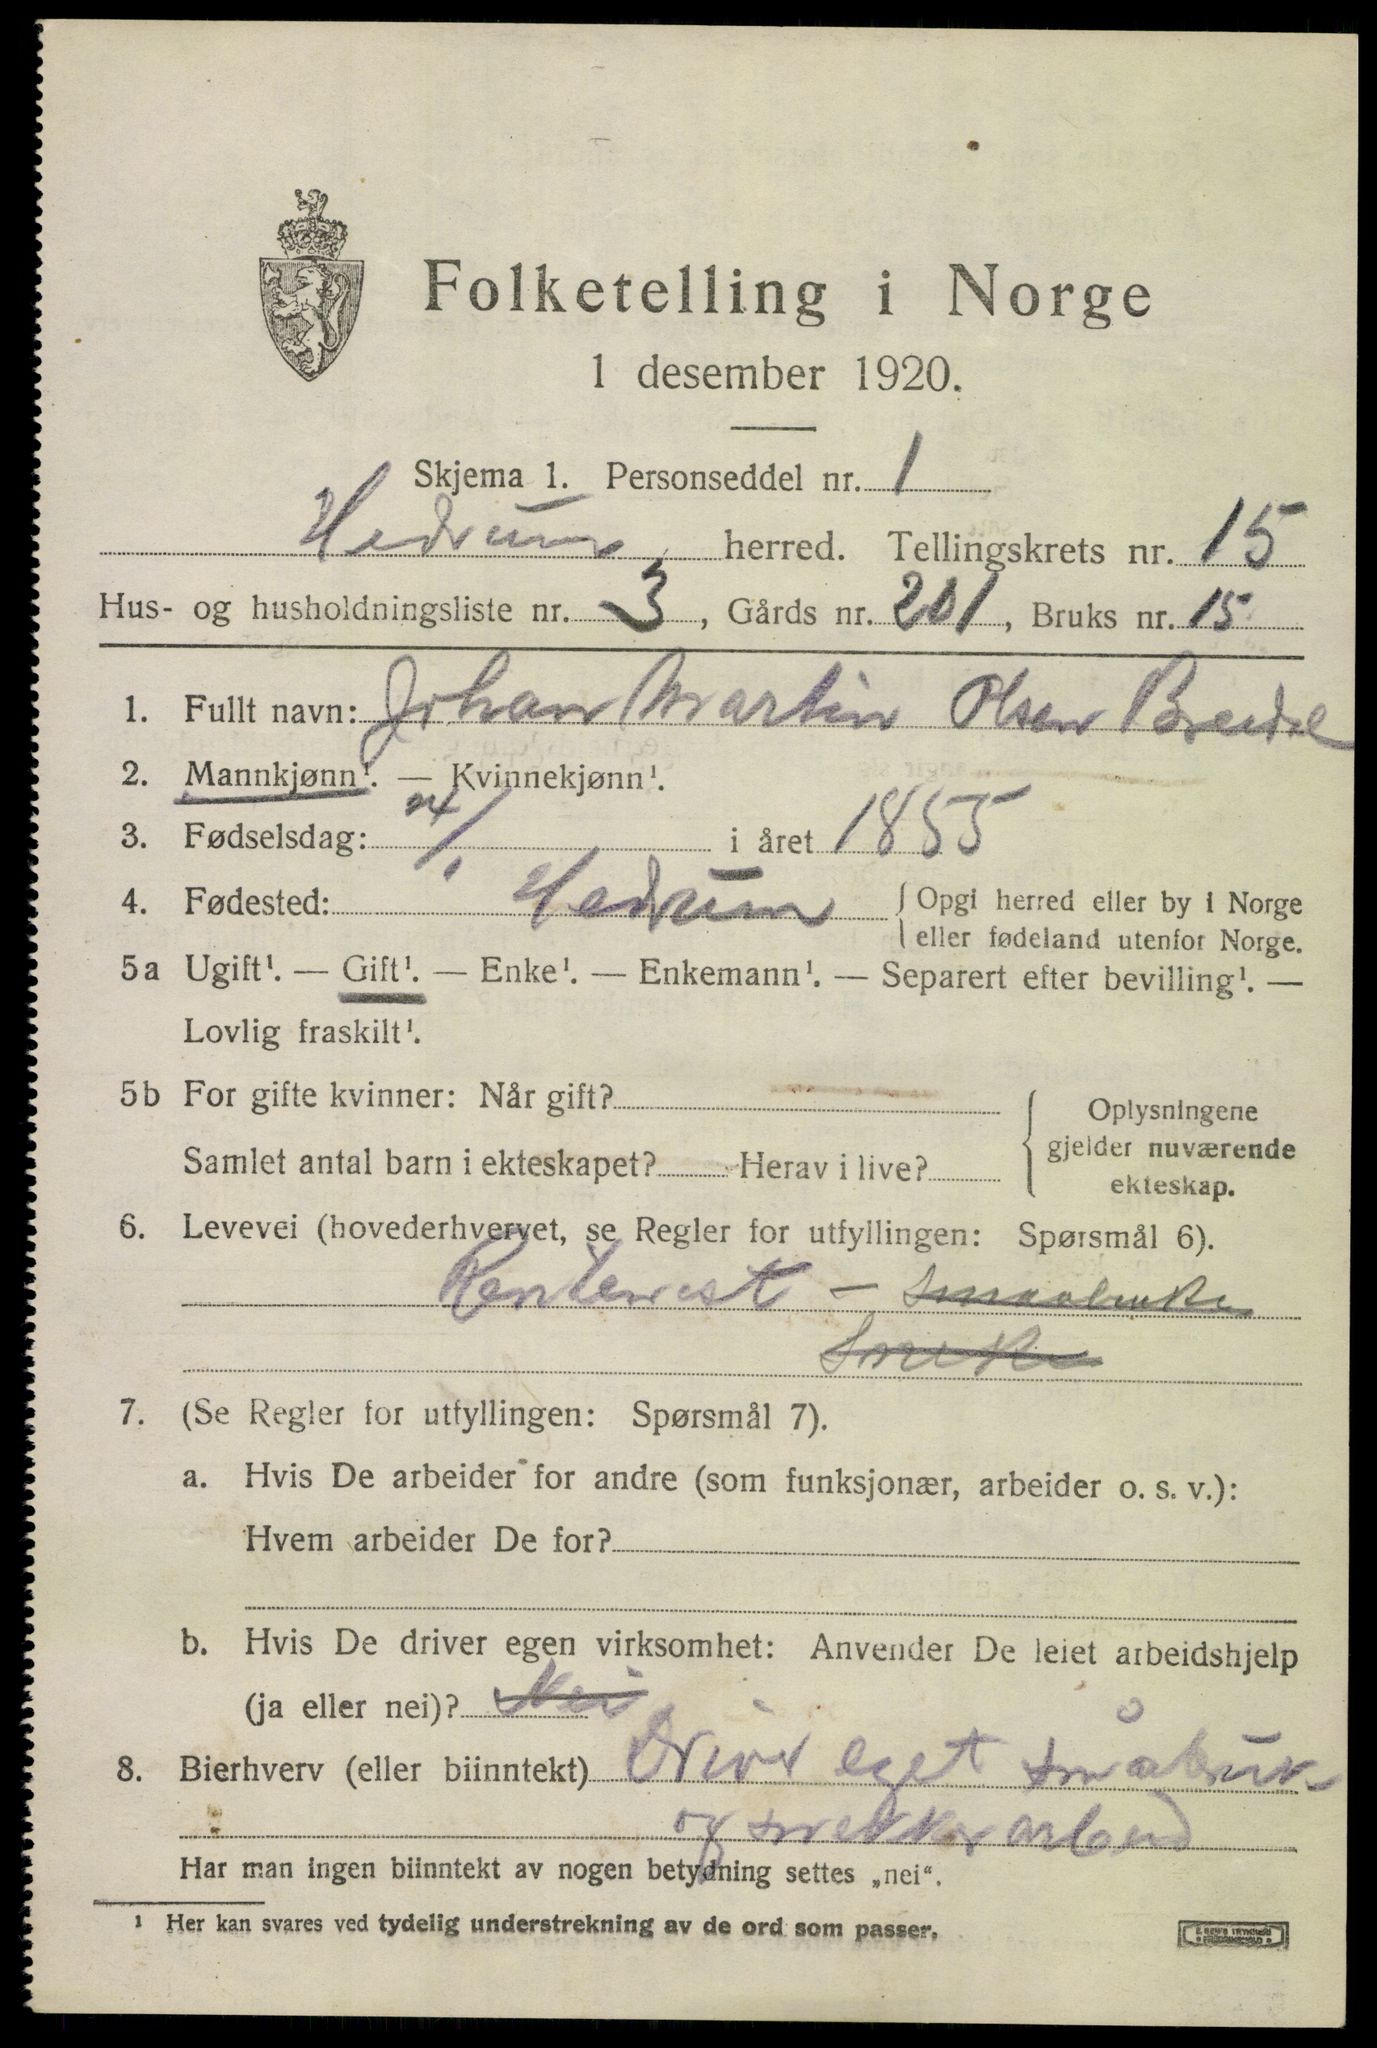 Folketelling i Norge
1 desember 1920.
Skjema 1. Personseddel nr. 1
Hedrum herred. Tellingskrets nr. 15
Hus- og husholdningsliste nr. 3, Gårds nr. 201, Bruks nr. 15
1. Fullt navn: Johan Martin Olsen
2. Mannkjønn¹. — Kvinnekjønn¹.
3. Fødselsdag: 24/1 i året 1855
4. Fødested: Hedrum { Opgi herred eller by i Norge
eller fødeland utenfor Norge.
5a Ugift¹. — Gift¹. — Enke¹. — Enkemann¹. — Separert efter bevilling¹. —
Lovlig fraskilt¹.
5b For gifte kvinner: Når gift?
Samlet antal barn i ekteskapet? Herav i live?
Oplysningene
gjelder nuværende
ekteskap.
6. Levevei (hovederhvervet, se Regler for utfyllingen: Spørsmål 6).
Rentenist –
7. (Se Regler for utfyllingen: Spørsmål 7).
a. Hvis De arbeider for andre (som funksjonær, arbeider o. s. v.):
Hvem arbeider De for?
b. Hvis De driver egen virksomhet: Anvender De leiet arbeidshjelp
(ja eller nei)? Nei
8. Bierhverv (eller biinntekt) Driver eget småbruk
og snekkerarbeid
Har man ingen biinntekt av nogen betydning settes „nei“.
¹ Her kan svares ved tydelig understrekning av de ord som passer.